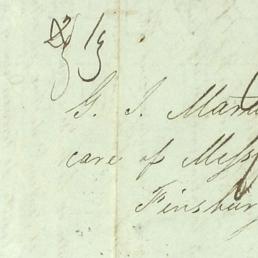 G. J. Mart
care of Mess
Finsbur